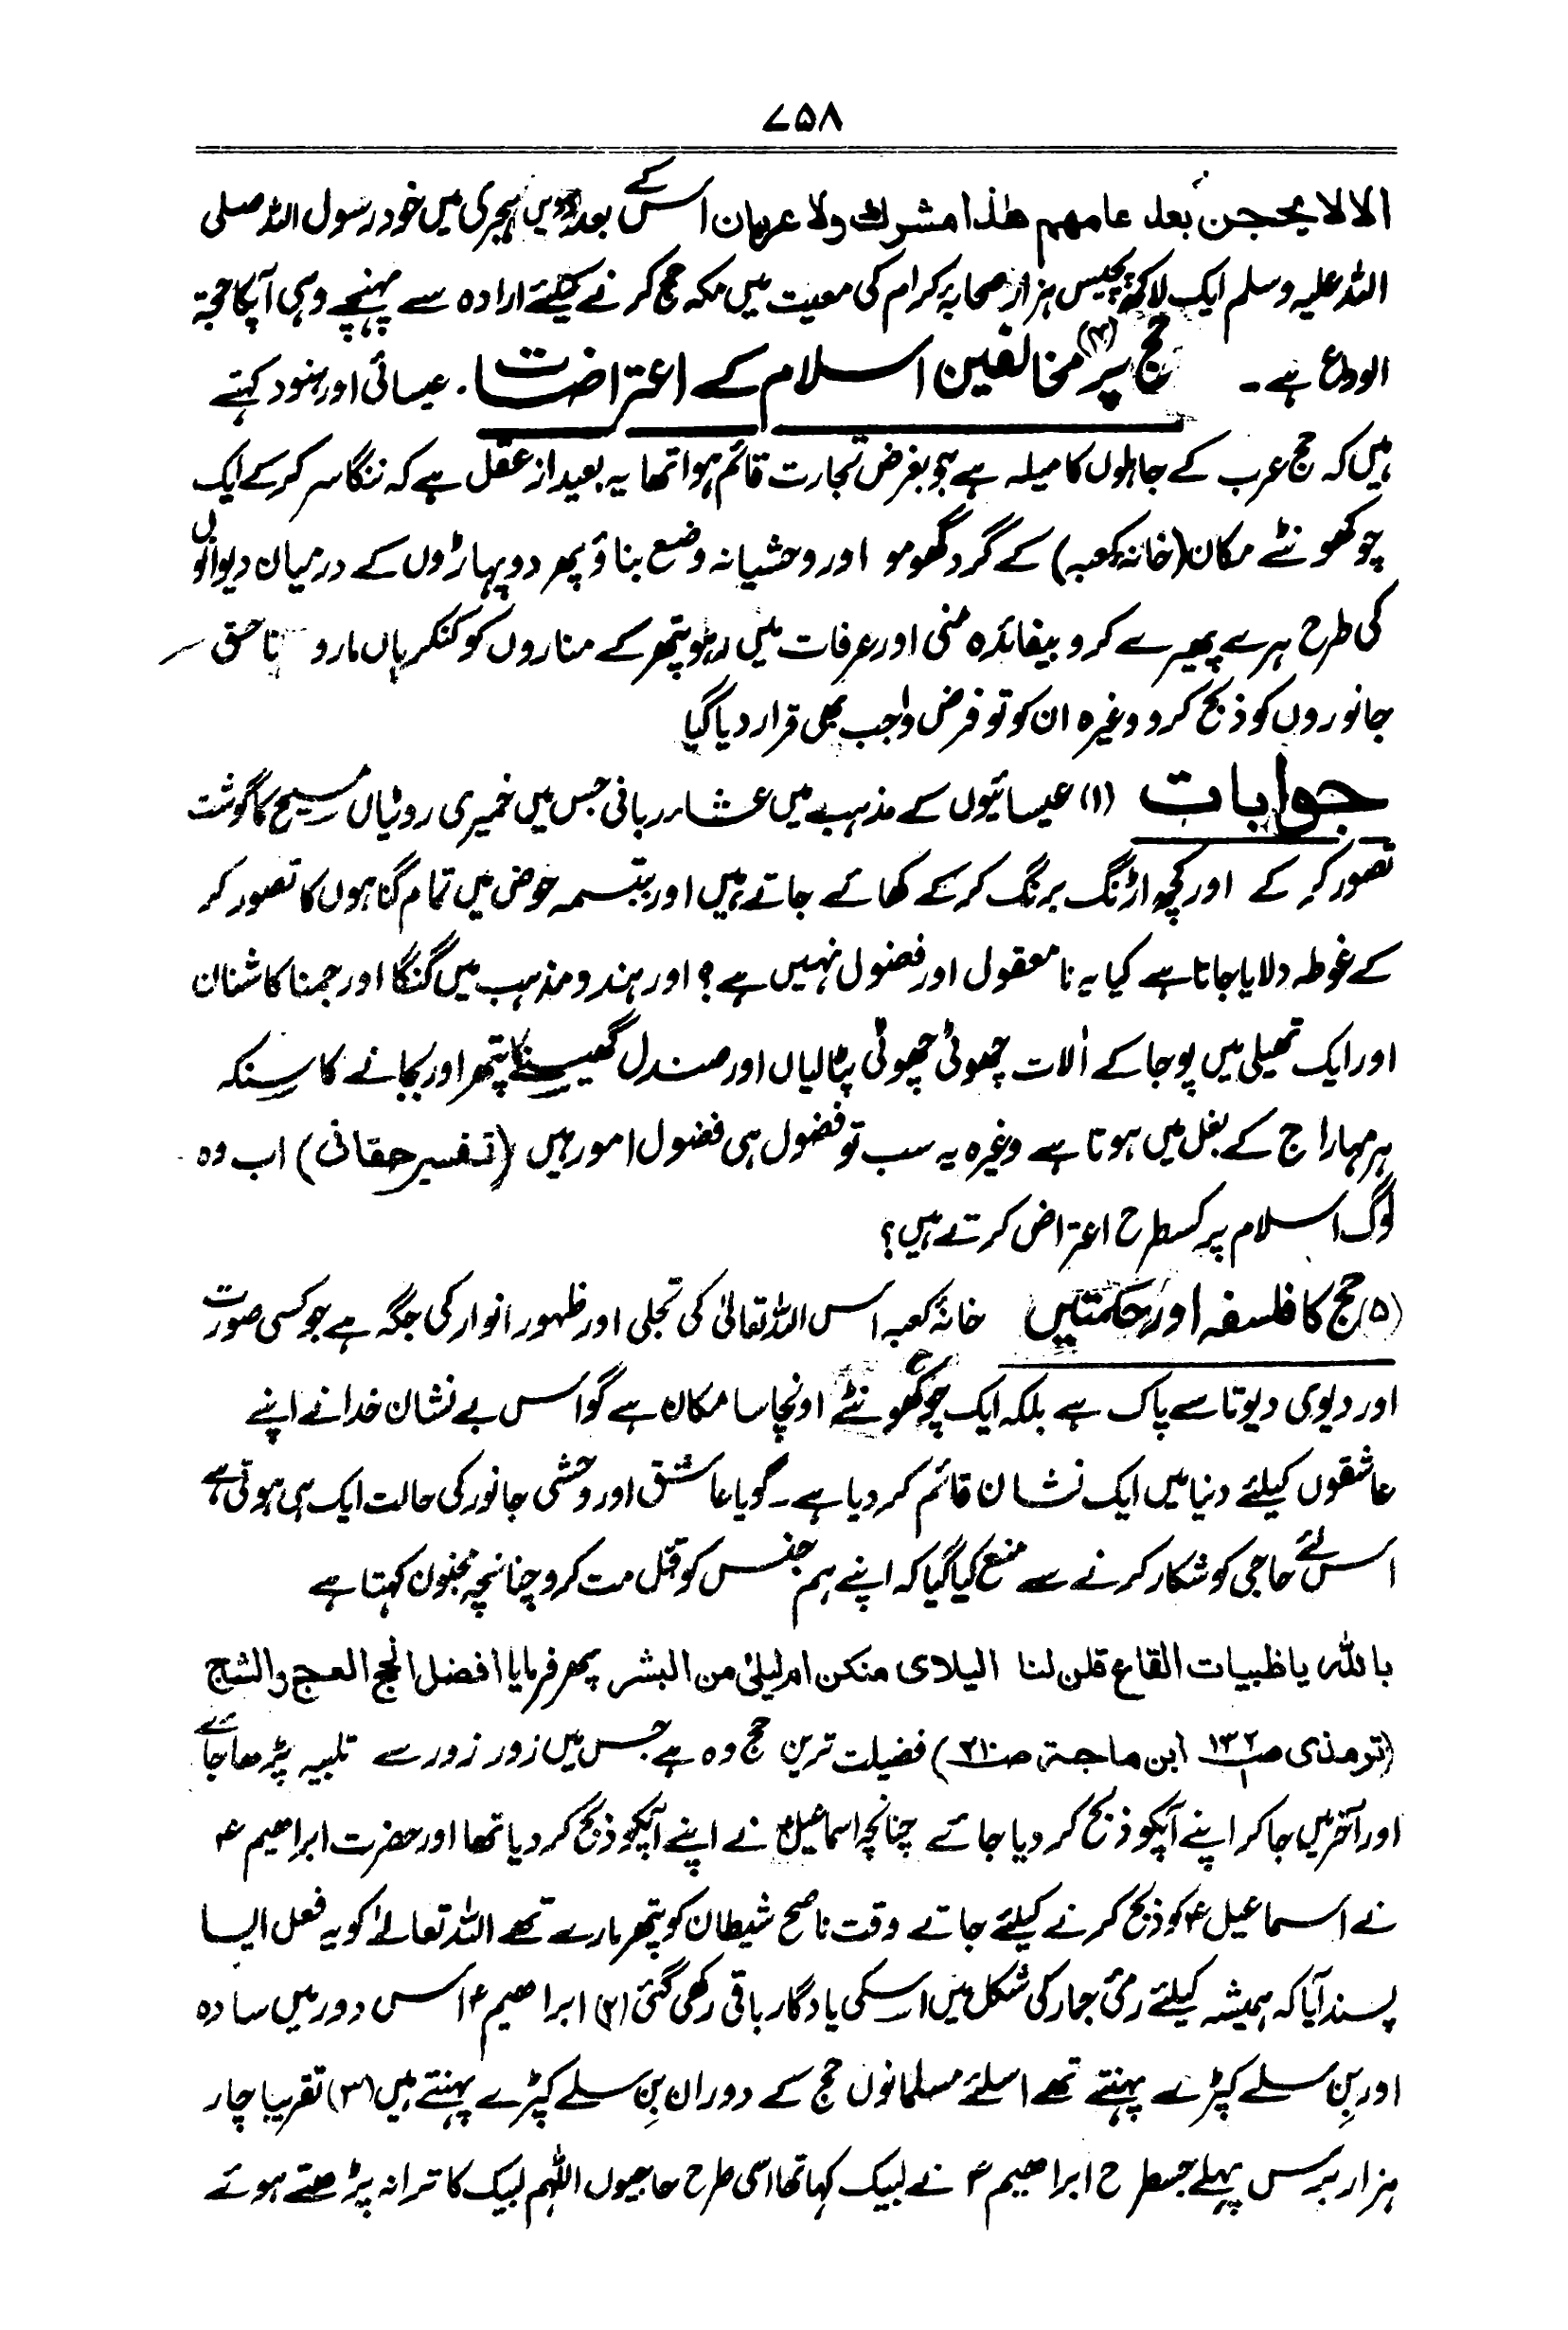 ۷۵۸
الا لا يحجن بعد عامهم هذا مشرك ولا عريان اس کے بعد دسویں ہجری میں خود رسول اللہ صلی
اللہ علیہ وسلم ایک لاکھ پچیس ہزار صحابۂ کرام کی معیت میں مکہ حج کرنے کیلئے ارادہ سے پہنچے وہی آپکا حجۃ
الوداع ہے۔ (۴) حج پر مخالفین اسلام کے اعتراضات . عیسائی اور ہنود کہتے
ہیں کہ حج عرب کے جاہلوں کا میلہ ہے جو بغرض تجارت قائم ہوا تھا یہ بعید از عقل ہے کہ ننگا سر کر کے ایک
چوکھونٹے مکان (خانہ کعبہ) کے گرد گھومو اور وحشیانہ وضع بناؤ پھر دو پہاڑوں کے درمیان دیوانوں
کی طرح ہرے پھیرے کرو بیفائدہ منی اور عرفات میں رہو پتھر کے مناروں کو کنکریاں مارو ناحق
جانوروں کو ذبح کرو وغیرہ ان کو تو فرض واجب بھی قرار دیا گیا
جوابات (۱) عیسائیوں کے مذہب میں عشاء ربانی جس میں خمیری روٹیاں مسیح کا گوشت
تصور کر کے اور کچھ اڑنگ برنگ کر کے کھائے جاتے ہیں اور بپتسمہ حوض میں تمام گناہوں کا تصور کر
کے غوطہ دلایا جاتا ہے کیا یہ نا معقول اور فضول نہیں ہے؟ اور ہندو مذہب میں گنگا اور جمنا کا شنان
اور ایک تھیلی میں پوجا کے اٰلات چھوٹی چھوٹی پٹالیاں اور صندل گھیسنے کا پتھر اور بجانے کا سنکہ
ہر مہاراج کے بغل میں ہوتا ہے وغیرہ یہ سب تو فضول ہی فضول امور ہیں (تفسیر حقانی) اب وہ
لوگ اسلام پر کسطرح اعتراض کرتے ہیں؟
(۵) حج کا فلسفہ اور حکمتیں خانۂ کعبہ اس اللہ تعالیٰ کی تجلی اور ظہور انوار کی جگہ ہے جو کسی صورت
اور دیوی دیوتا سے پاک ہے بلکہ ایک چوکھونٹے اونچا سا مکان ہے گو اس بے نشان خدا نے اپنے
عاشقوں کیلئے دنیا میں ایک نشان قائم کر دیا ہے۔ گویا عاشق اور وحشی جانور کی حالت ایک ہی ہوتی ہے
اس لئے حاجی کو شکار کرنے سے منع کیا گیا کہ اپنے ہم جنس کو قتل مت کرو چنانچہ مجنون کہتا ہے
بالله يا ظبيات القاع قلن لنا اليلاى منكن ام ليلىٰ من البشر پھر فرمایا افضل الحج العج والثج
(ترمذی ص۱۳۲ ابن ماجۃ ص۲۱۰) فضیلت ترین حج وہ ہے جس میں زور زور سے تلبیہ پڑھا جائے
اور آخر میں جا کر اپنے آپکو ذبح کر دیا جائے چنانچہ اسماعیلؑ نے اپنے آپکو ذبح کر دیا تھا اور حضرت ابراھیم ؑ
نے اسماعیل ؑ کو ذبح کرنے کیلئے جاتے وقت ناصح شیطان کو پتھر مارے تھے اللہ تعالےٰ کو یہ فعل ایسا
پسند آیا کہ ہمیشہ کیلئے رمئ جمار کی شکل میں اسکی یادگار باقی رکھی گئی (۲) ابراھیم ؑ اس دور میں سادہ
اور بِن سلے کپڑے پہنتے تھے اسلئے مسلمانوں حج کے دوران بِن سلے کپڑے پہنتے ہیں (۳) تقریبا چار
ہزار برس پہلے جسطرح ابراھیم ؑ نے لبیک کہا تھا اسی طرح حاجیوں اللہم لبیک کا ترانہ پڑھتے ہوئے